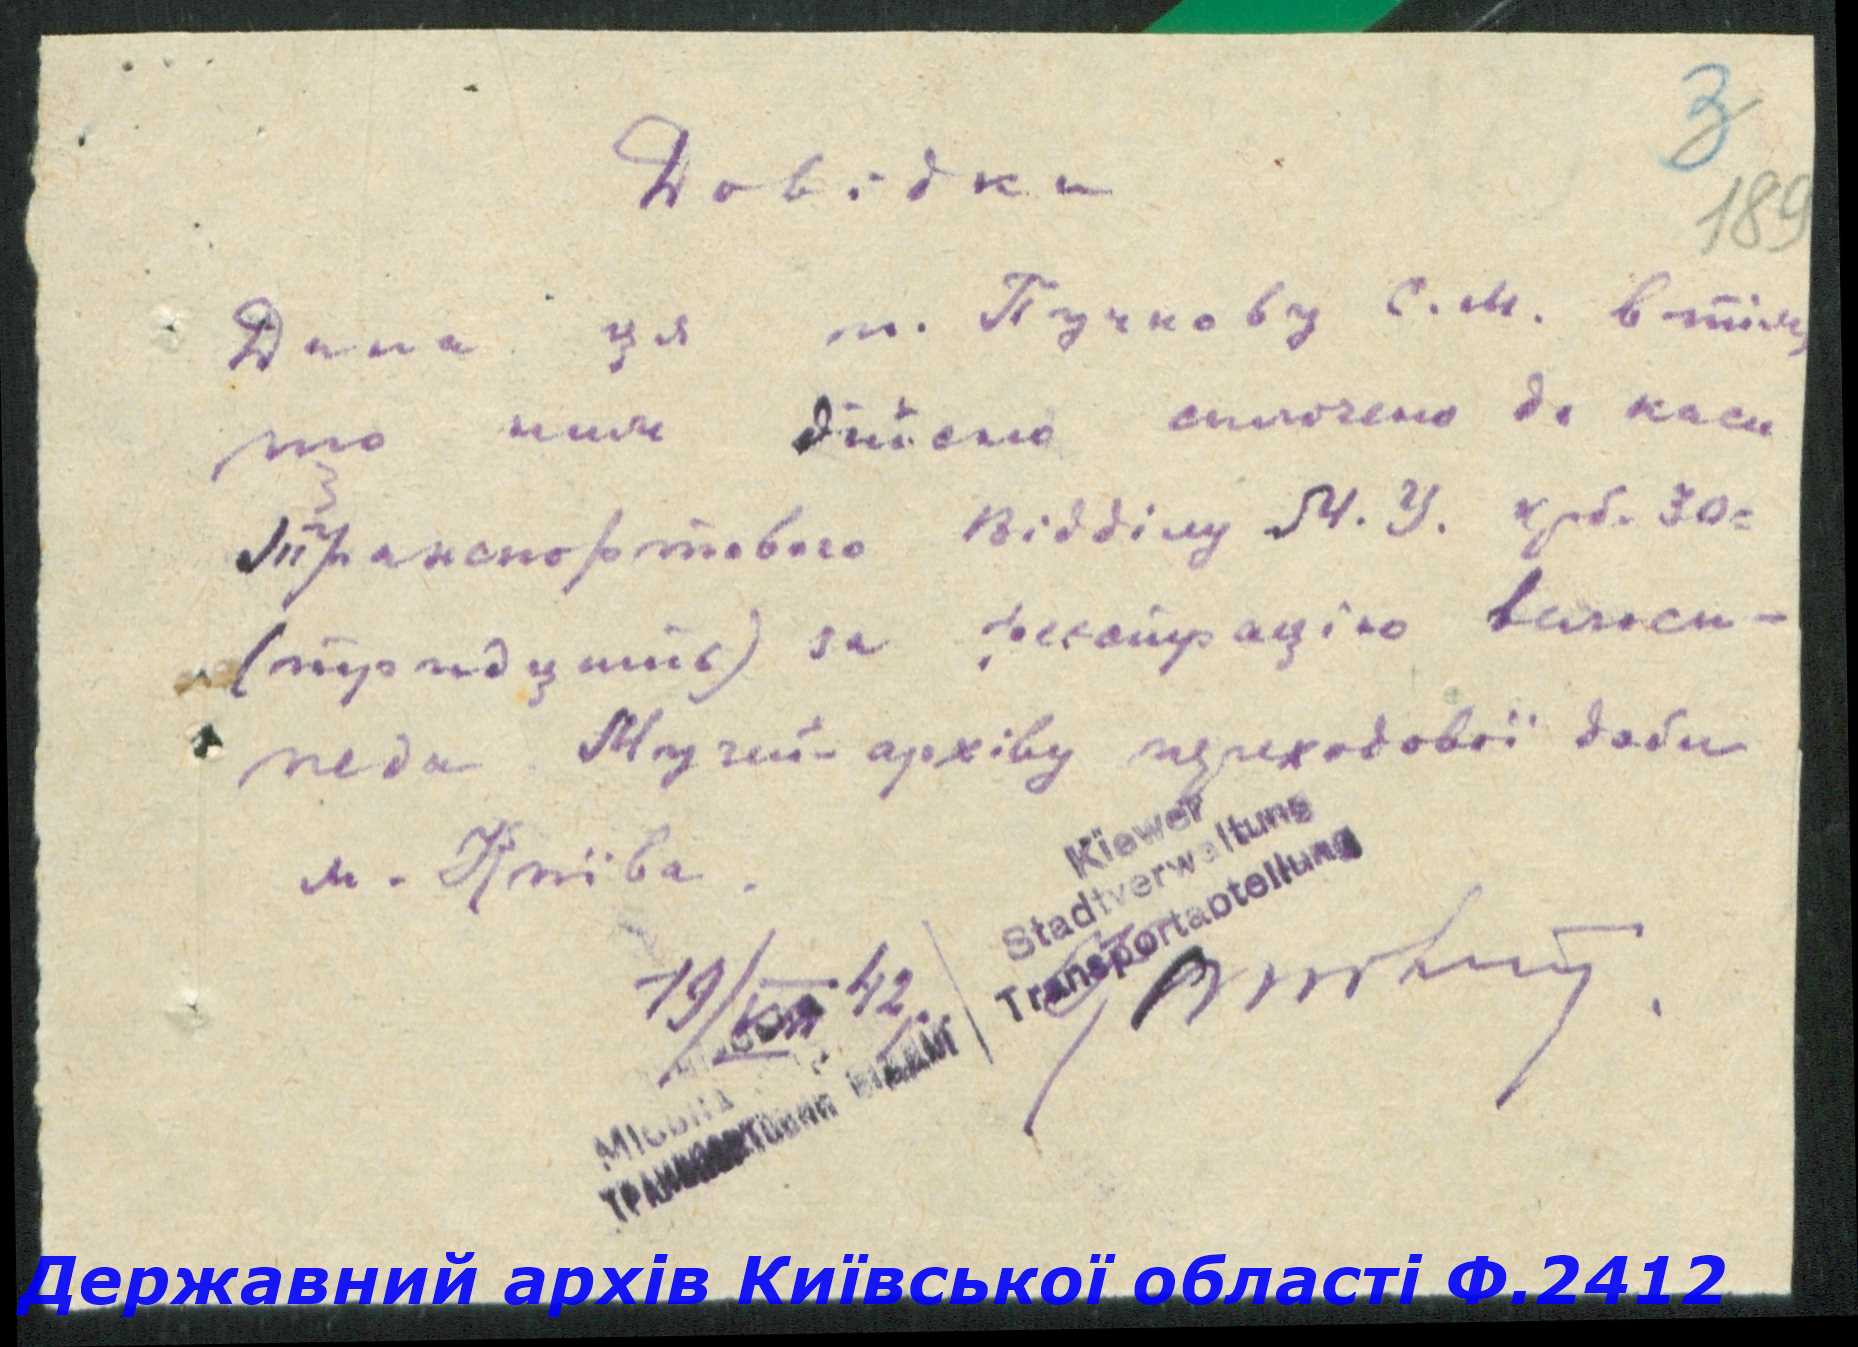 3
189
Довідка
Дана ця т. Пучкову С.М. в тім,
що ним дійсно сплочено до каси
Транспортового Відділу М.У. крб. 30=
(тридцать) за реєстрацію велоси-
педа Музей-архіву переходової доби
м. Київа.
Kiewer
Stadtverwaltung
Transportabteilung
19/XII 42.
Київська
Міська
Транспортовий відділ
Державний архів Київської області Ф.2412